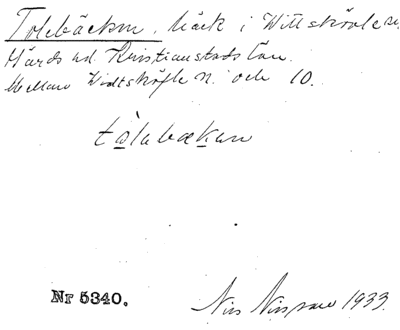 Tolebäcken. Bäck i Wittskövle sn.
Gärds hd. Kristianstads län.
Mellan Wittsköfle N. och 10.
tòlabækan
Nr 5340.
Nils Nilsson 1933.